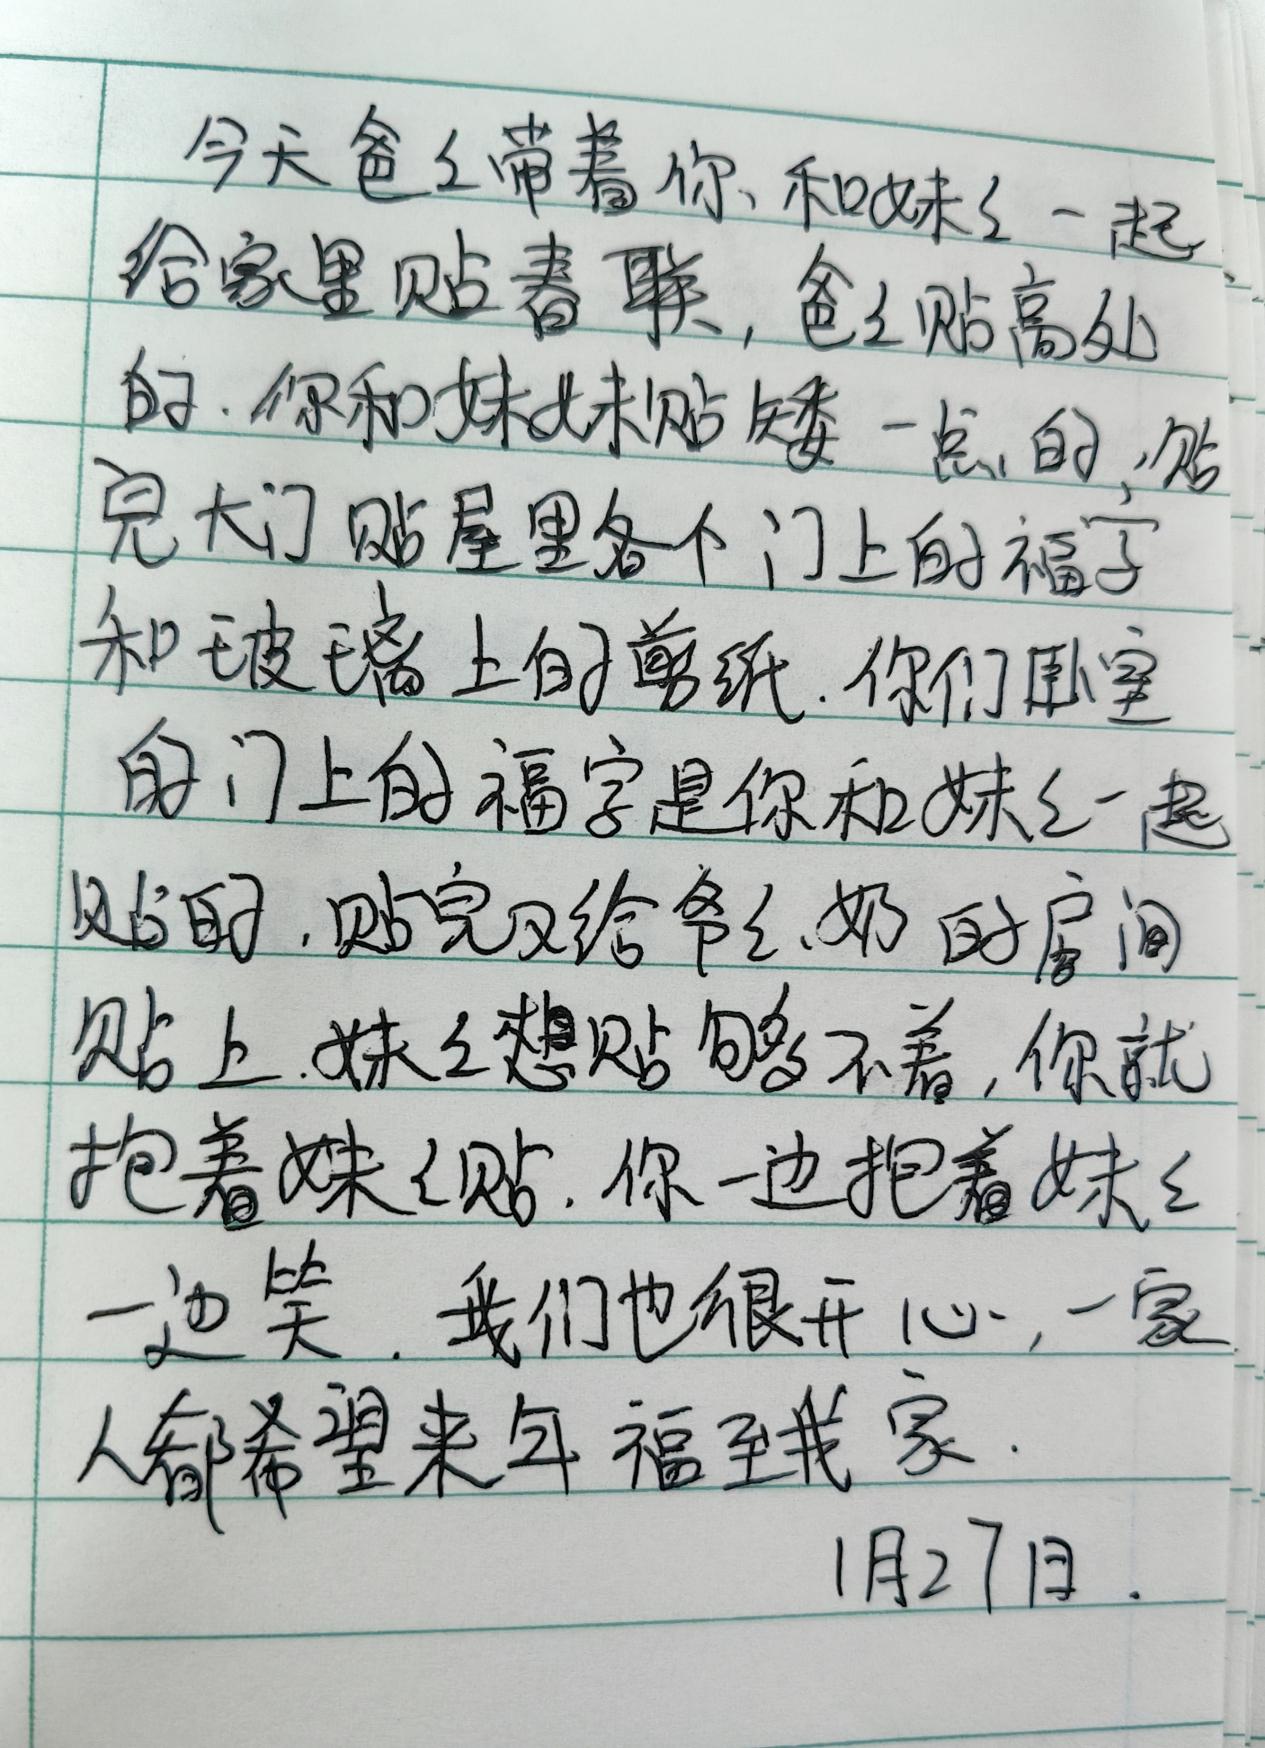 今天爸々带着你、和妹々一起
给家里贴春联,爸々贴高处
的.你和妹妹贴矮一点的,贴
完大门贴屋里各个门上的福字
和玻璃上的剪纸.你们卧室
的门上的福字是你和妹々一起
贴的.贴完又给爷々、奶的房间
贴上.妹々想贴够不着,你就
抱着妹々贴.你一边抱着妹々
一边笑.我们也很开心,一家
人都希望来年福至我家.
1月27日.